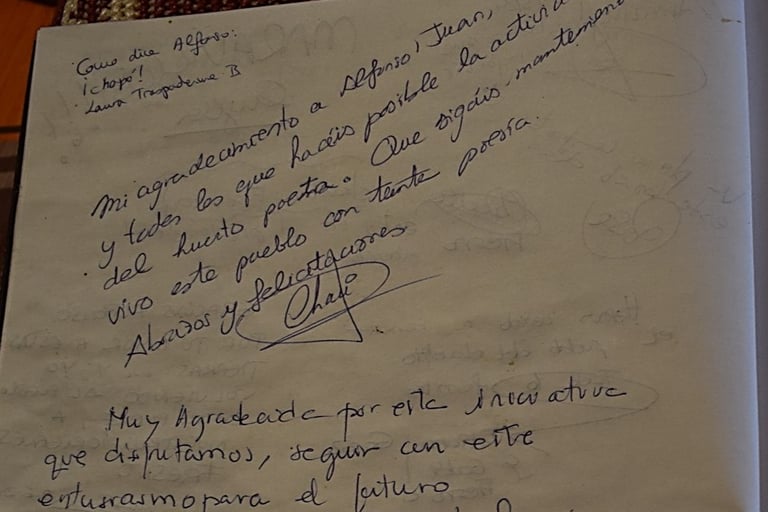 Como dice Alfonso:
¡chapó!
Laura Traspaderne B
Mi agradecimiento a Alfonso, Juan,
y todos los que hacéis posible la activid
del huerto poético. Que sigáis manteniend
vivo este pueblo con tanta poesía.
Abrazos y felicitaciones
Chari
Muy Agradecida por esta iniciativa
que disfrutamos, seguir con este
entusiasmo para el futuro